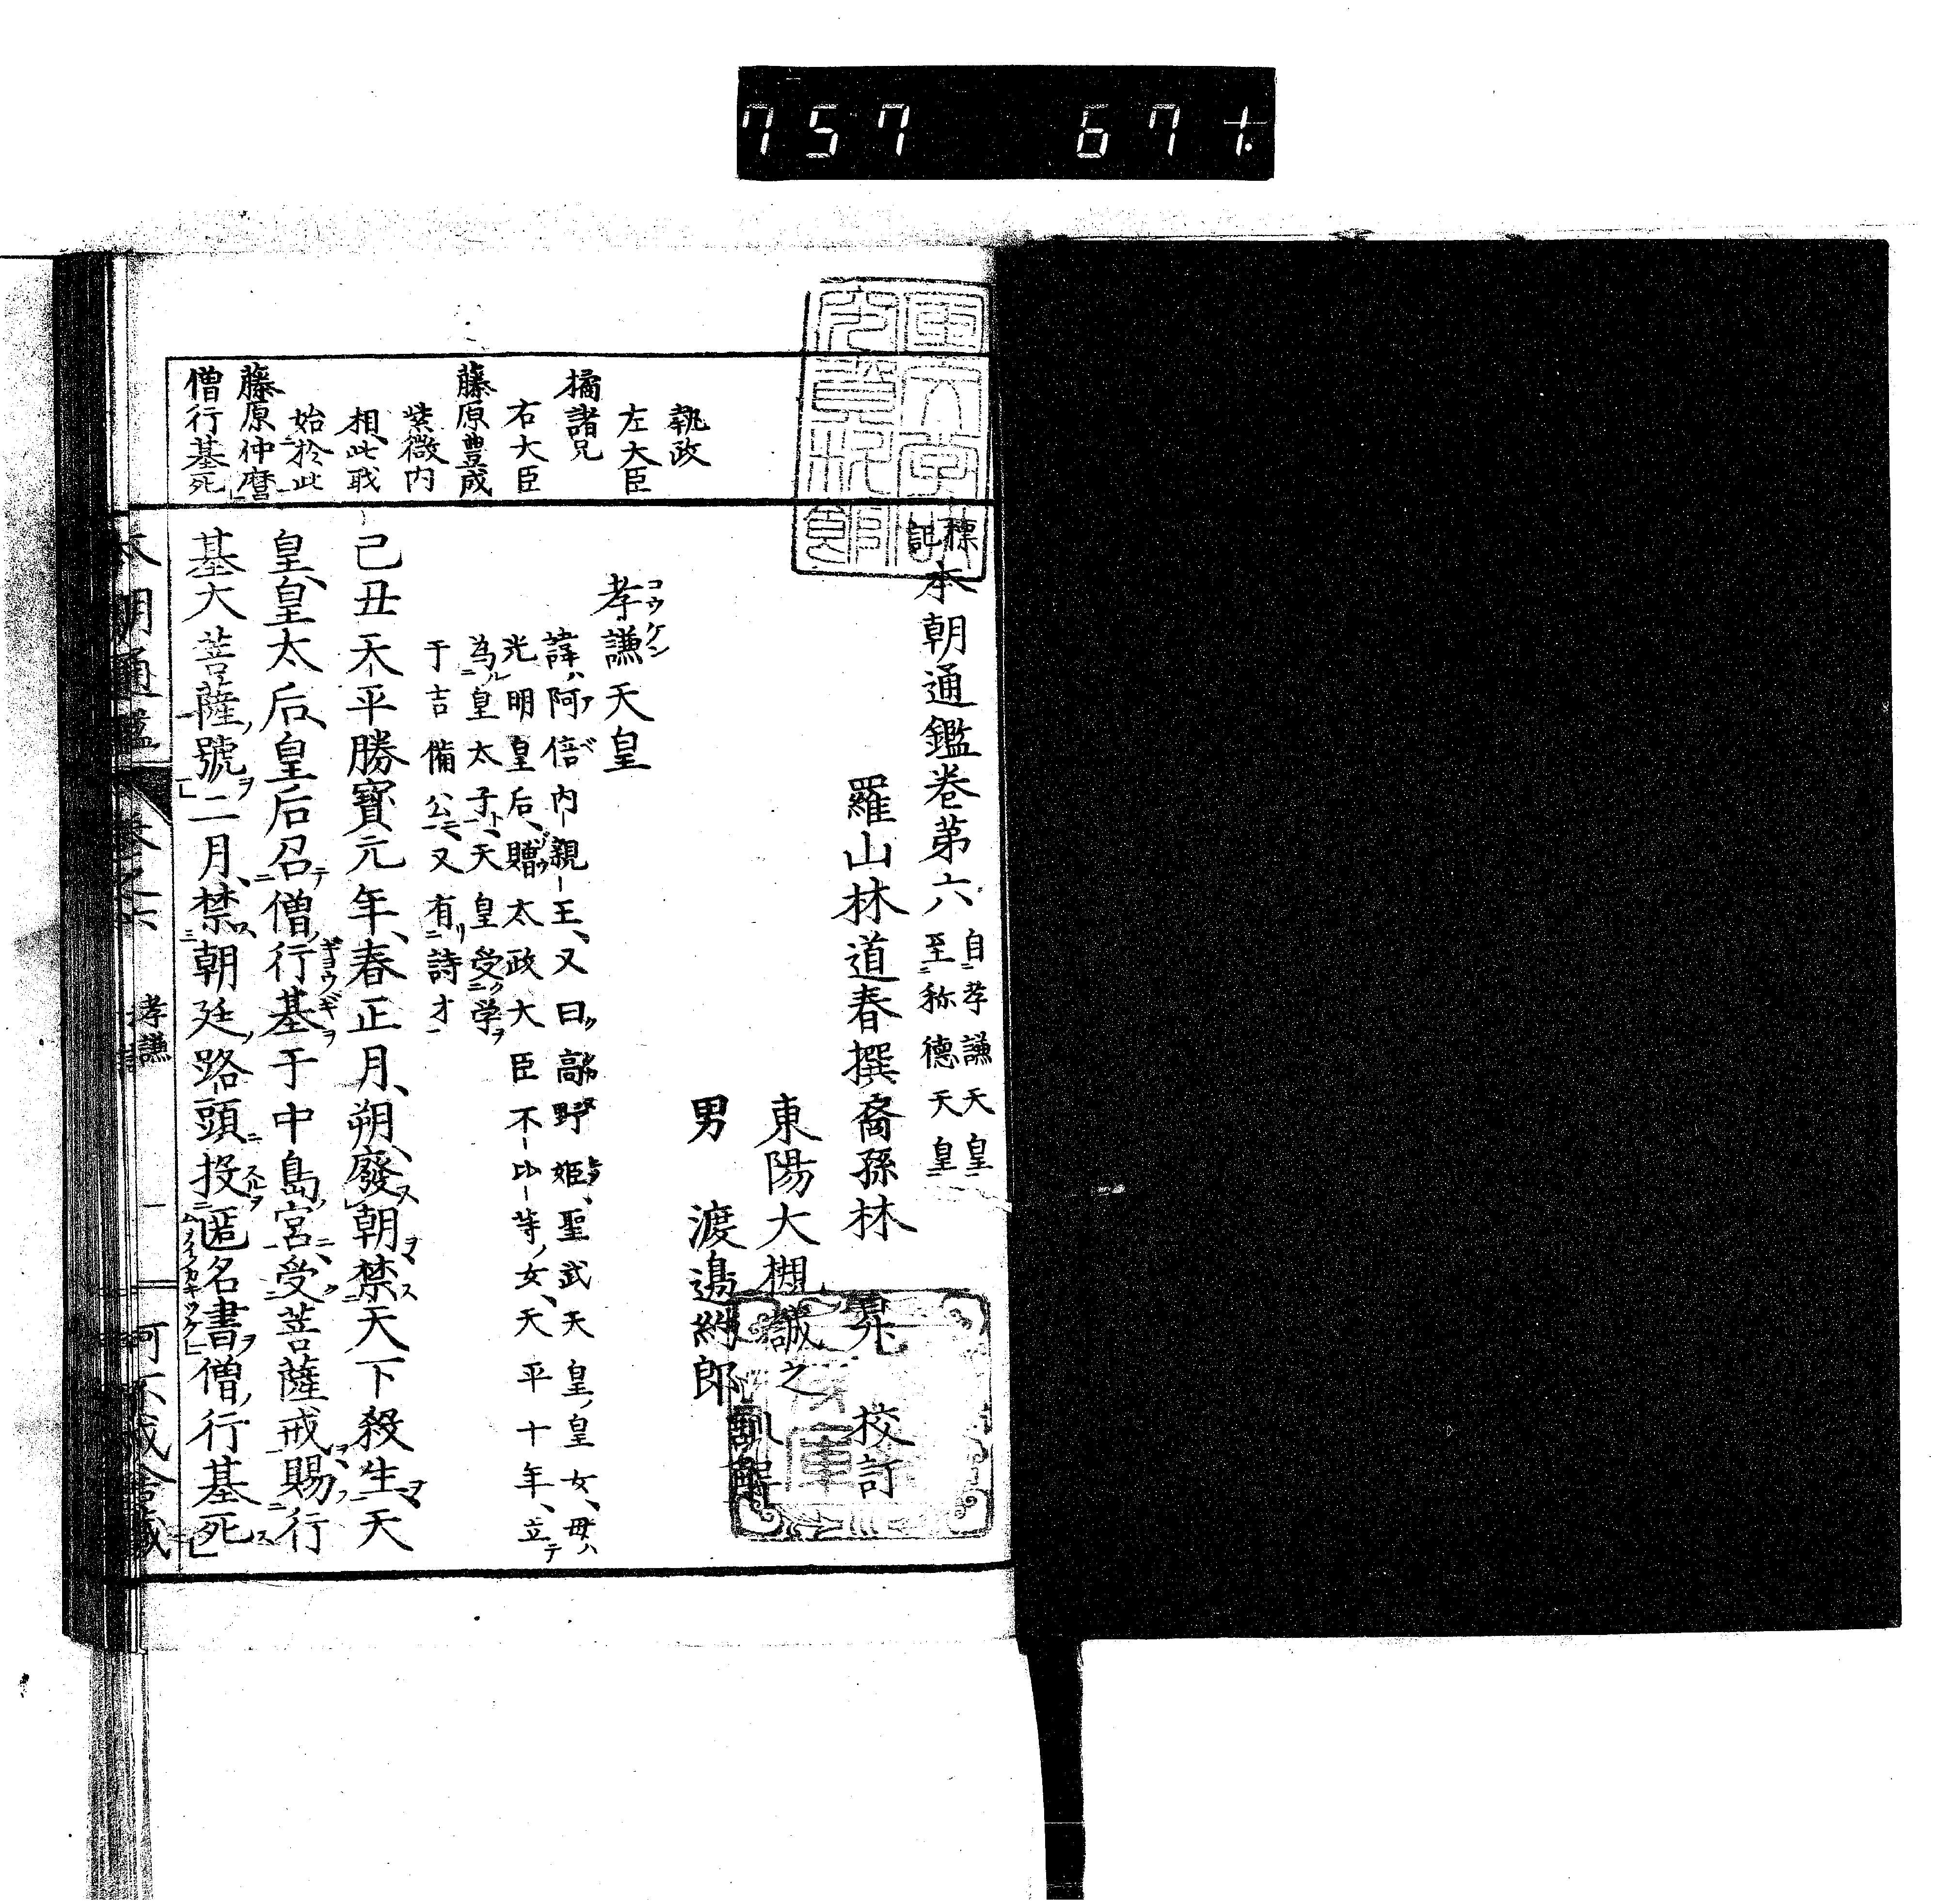 757 671
標記
本朝通鑑卷第六
自孝謙天皇
至称德天皇
羅山林道春撰裔孫林昇校訂
東陽大槻誠之
男 渡邉約郎
孝謙天皇
諱阿倍内親王、又曰高野姬、聖武天皇皇女、母
光明皇后、贈太政大臣不比等女、天平十年、立
為皇太子、天皇受学
于吉備公、又有詩才
己丑天平勝寶元年、春正月、朔、廢朝禁天下殺生天
皇、皇太后、皇后召僧行基于中島宮、受菩薩戒賜行
基大菩薩號」二月、禁朝廷路頭投匿名書」僧行基死」
執政
左大臣
橘諸兄
右大臣
藤原豊成
紫微内
相此職
始於此
藤原仲麿
僧行基死
孝謙